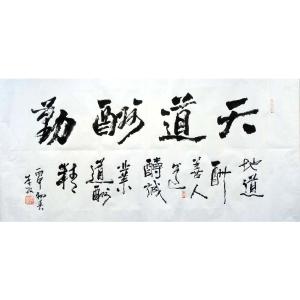 天道酬勤
地道
酬
善人
道
酬誠
業
道酬
精